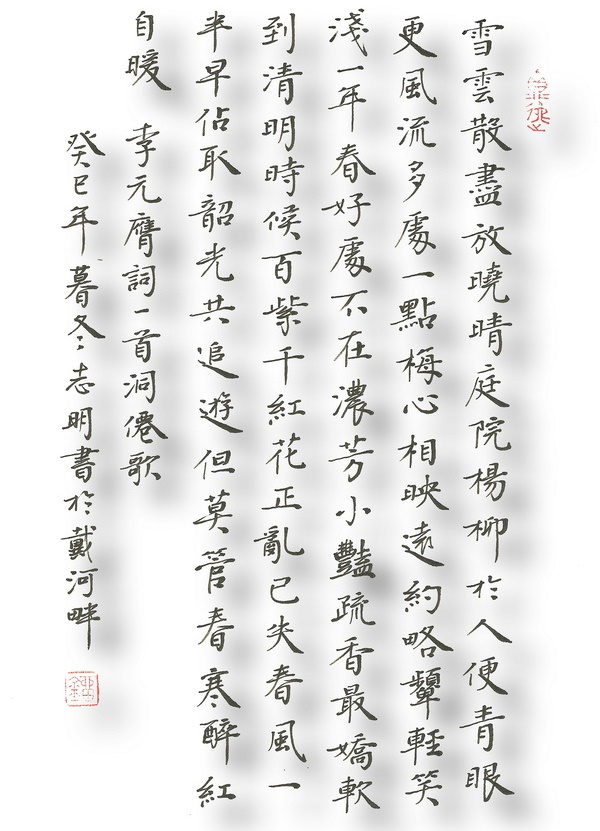 雪雲散盡放曉晴庭院楊柳於人便青眼
更風流多處一點梅心相映遠約略顰輕笑
淺一年春好處不在濃芳小豔疏香最嬌軟
到清明時候百紫千紅花正亂已失春風一
半早佔取韶光共追遊但莫管春寒醉紅
自暖 李元膺詞一首洞僊歌
癸巳年暮冬志明書於戴河畔